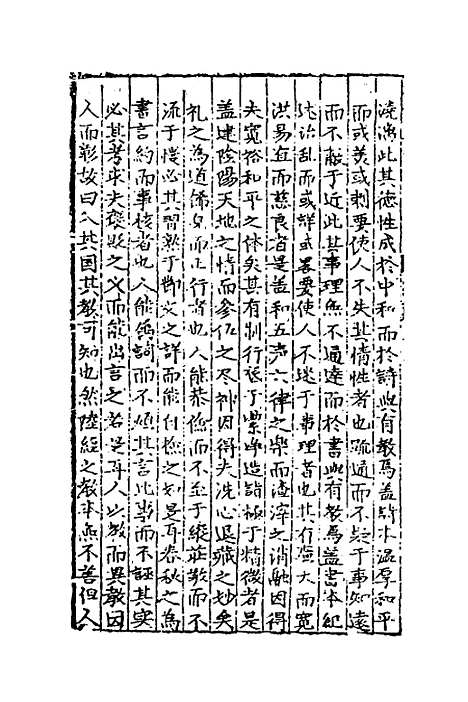 澆漓此其德性成於中和而於詩此有教焉盖詩本温厚和平
而或美或刺要使人不失其情性者也疏通而不疑于事知遠
而不蔽于近此其事理無不通達而於書此有教焉盖書本紀
政治乱而或詳或畧要使人不迷于事理者也其有廣大而寛
洪易直而慈良者是盖和五声六律之樂而渣滓之消融因得
夫寛裕和平之体矣其有制行低于潔峙造詣極于精微者是
盖建陰陽天地之情而参伍之尽神因得夫洗心退藏之妙矣
礼之為道備皃而正行者也人能恭儉而不至于縱莊敬而不
流于慢必其習熟于節文之詳而能付檢之如是耳春秋之為
書言約而事核者也人能属詞而不煩其言比事而不誣其实
必其考乎夫褒貶之义而能出言之若是耳人以教而異教因
人而彰故曰入其国其教可知也然陸經之教本無不善但人